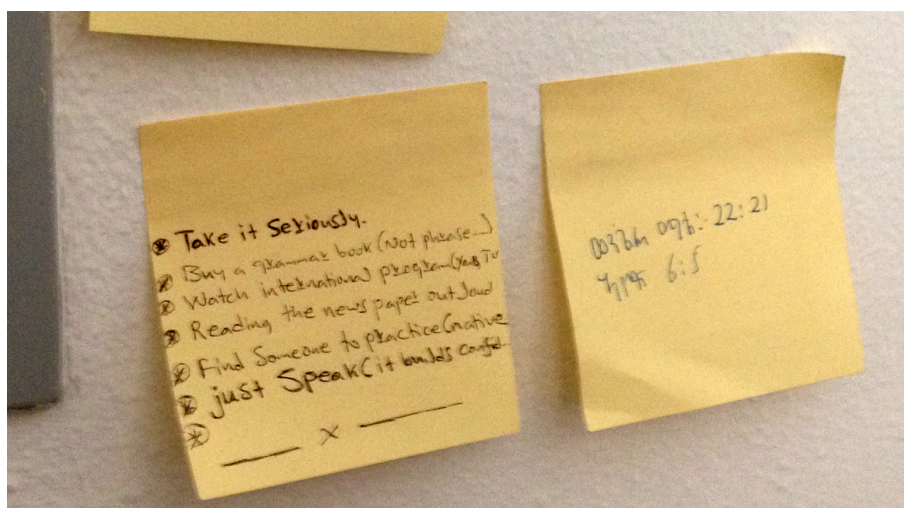 Take it Seriously.
Buy a grammar book (Not phrase...)
Watch international program (
Reading the news paper out loud
Find Someone to practice (native
just Speak (it builds confid..
x
22:21
6:5